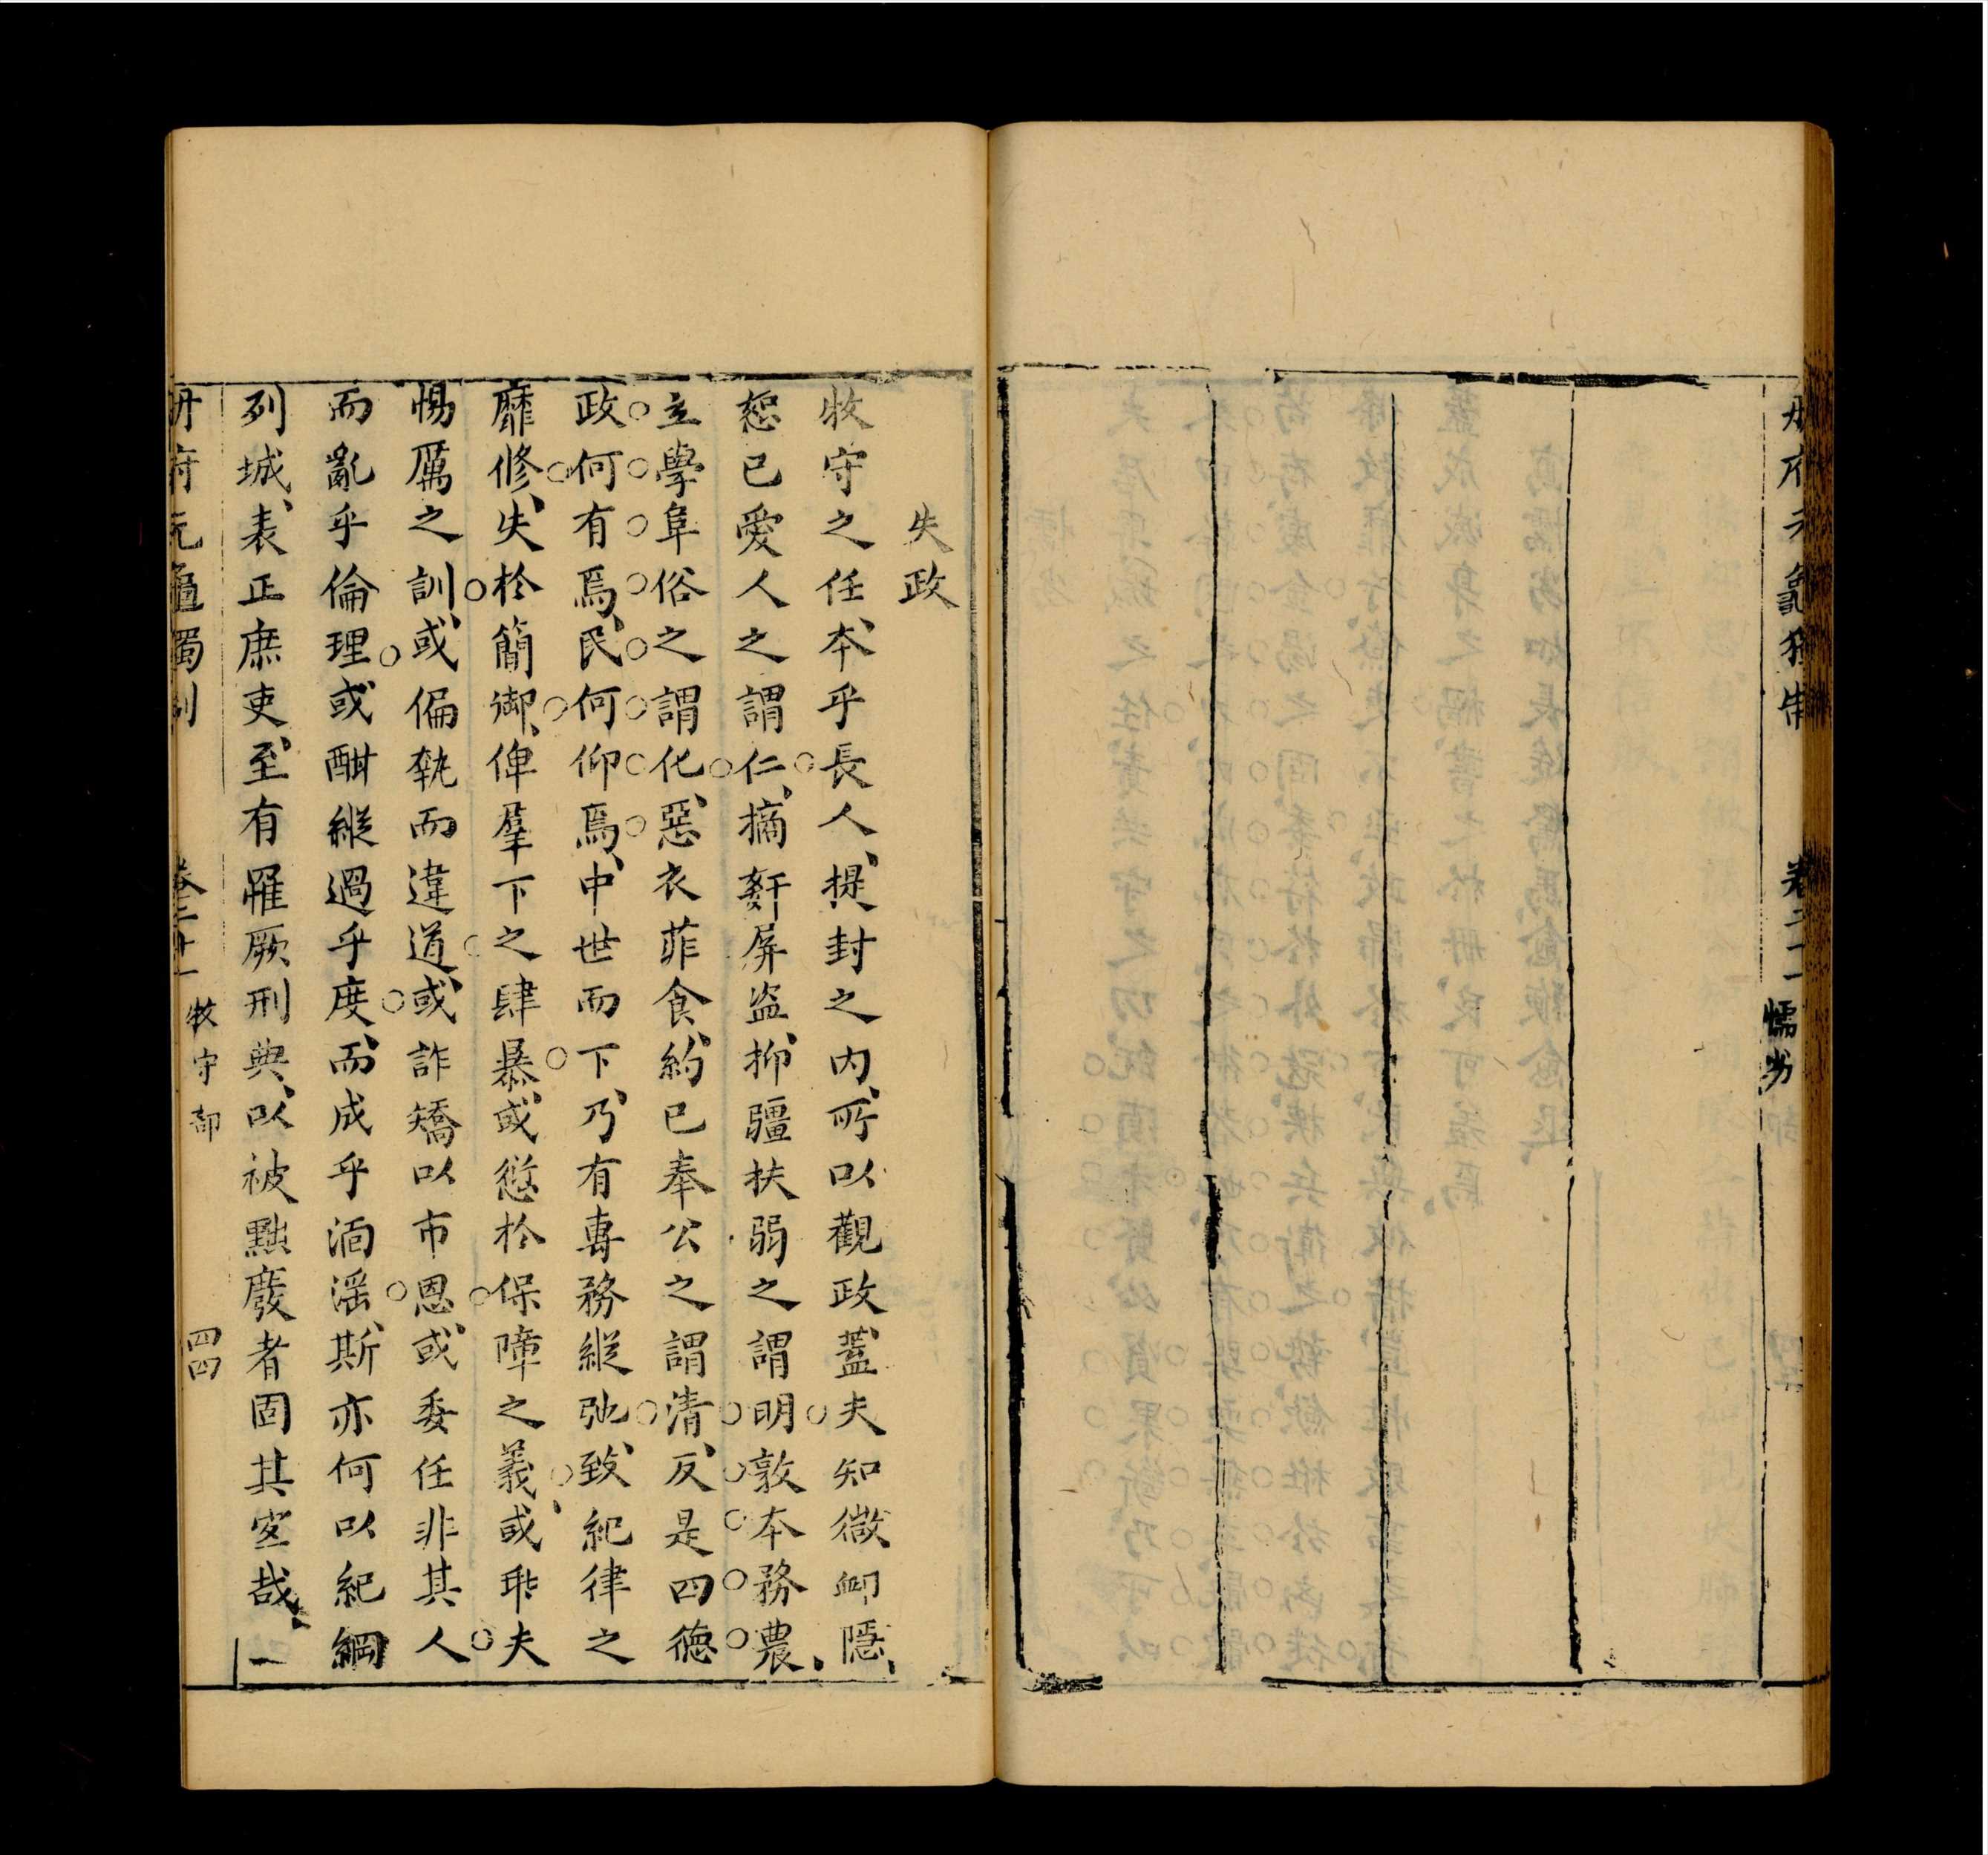 冊府元龜獨制
卷二十一
懦劣
失政
牧守之任、本乎長人、提封之内、所以觀政、蓋夫知微卹隱、
恕已愛人之謂仁、摘姧屏盗、抑疆扶弱之謂明敦本務農、
立學阜俗之謂化、惡衣菲食、約已奉公之謂清、反是四德
政何有焉、民何仰焉、中世而下、乃有專務縱弛、致紀律之
靡修、失於簡御、俾羣下之肆暴、或愆於保障之義、或乖夫
惕厲之訓、或偏執而違道、或詐矯以市恩、或委任非其人
而亂乎倫理、或酣縱過乎度、而成乎湎滛、斯亦何以紀綱
列城、表正庶吏、至有罹厥刑典、以被黜廢者固其宐哉、
冊府元龜獨制
卷二十一
牧守部
四四